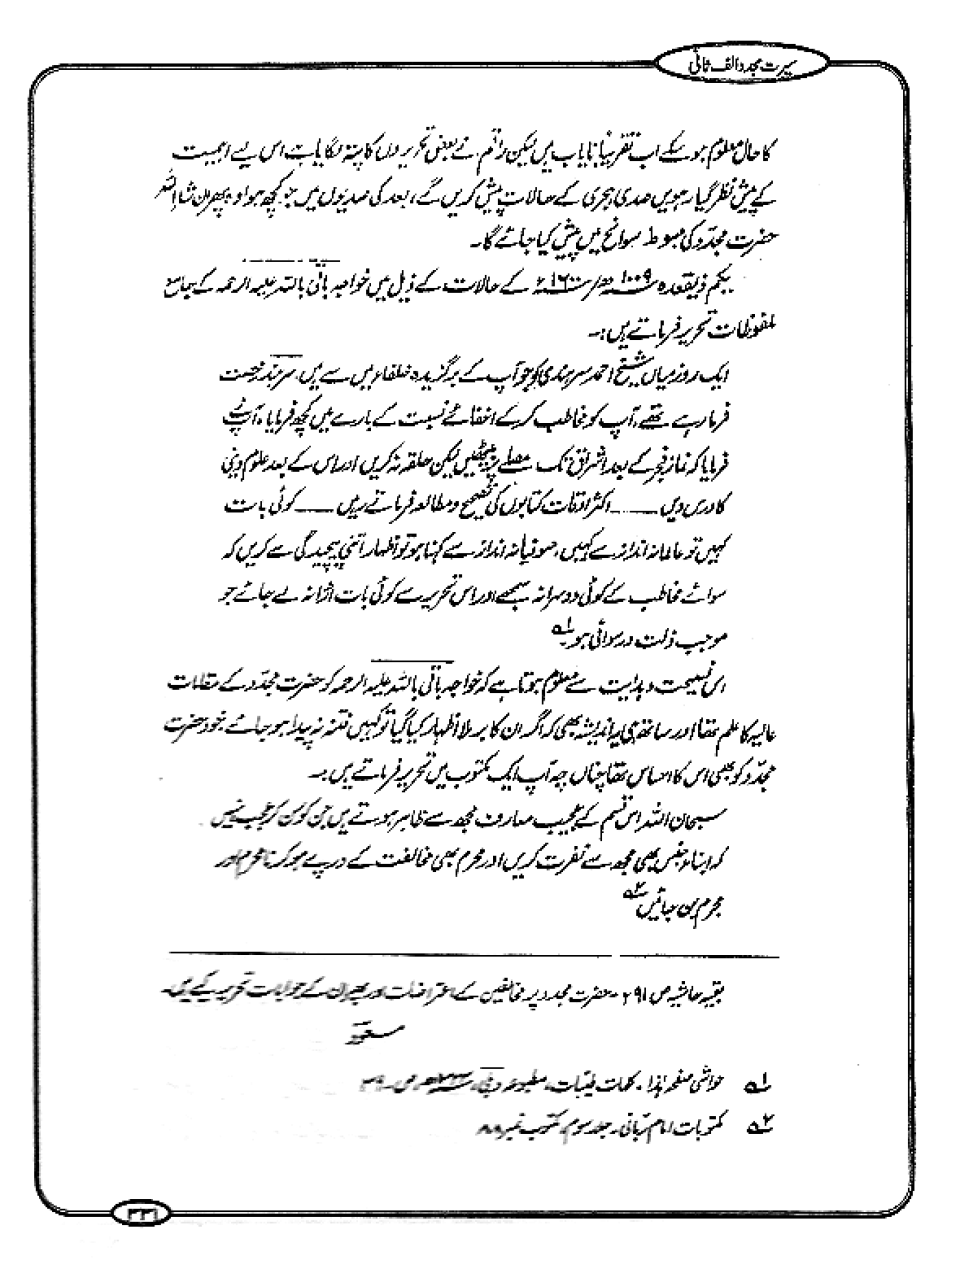 سیرت مجدد الف ثانی
کا حال معلوم ہو سکے اب تقریباً نایاب ہیں لیکن راقم نے بعض تحریروں کا پتہ لگایا ہے اس لیے اہمیت
کے پیش نظر گیارہویں صدی ہجری کے حالات پیش کریں گے، بعد کی صدیوں میں جو کچھ ہوا وہ پھر ان شاء اللہ
حضرت مجدّد کی مبسوط سوانح میں پیش کیا جائے گا۔
یکم ذیقعدہ ۱۰۰۹ھ/۱۶۰۰ء کے حالات کے ذیل میں خواجہ باقی باللہ علیہ الرحمہ کے جامع
ملفوظات تحریر فرماتے ہیں:۔
ایک روز میاں شیخ احمد سرہندی کو جو آپ کے برگزیدہ خلفاء میں سے ہیں، سرہند رخصت
فرما رہے تھے، آپ کو مخاطب کر کے اخفائے نسبت کے بارے میں کچھ فرمایا، آپ نے
فرمایا کہ نماز فجر کے بعد اشراق تک مصلے پر بیٹھیں لیکن حلقہ نہ کریں اور اس کے بعد علوم دینی
کا درس دیں ــــ اکثر اوقات کتابوں کی تصحیح و مطالعہ فرماتے رہیں ــــ کوئی بات
کہیں تو عالمانہ انداز سے کہیں، صوفیانہ انداز سے کہنا ہو تو اظہار اتنی پیچیدگی سے کریں کہ
سوائے مخاطب کے کوئی دوسرا نہ سمجھے اور اس تحریر سے کوئی بات اڑا نہ لے جائے جو
موجب ذلت و رسوائی ہو۔ ؎۱
اس نصیحت و ہدایت سے معلوم ہوتا ہے کہ خواجہ باقی باللہ علیہ الرحمہ کو حضرت مجدّد کے مقامات
عالیہ کا علم تھا اور ساتھ ہی یہ اندیشہ بھی کہ اگر ان کا برملا اظہار کیا گیا تو کہیں فتنہ نہ پیدا ہو جائے، خود حضرت
مجدّد کو بھی اس کا احساس تھا چناں چہ آپ ایک مکتوب میں تحریر فرماتے ہیں:۔
سبحان اللہ اس قسم کے عجیب معارف مجھ سے ظاہر ہوتے ہیں جن کو سن کر عجب نہیں
کہ ابناء جنس بھی مجھ سے نفرت کریں اور محرم بھی مخالفت کے درپے ہو کر نامحرم اور
مجرم بن جائیں ؎۲
بقیہ حاشیہ ص ۲۹۱۔ حضرت مجدد پر مخالفین کے اعتراضات اور پھر ان کے جوابات تحریر کیے ہیں۔
مسعود
؎۱ حواشی صفحہ ہٰذا۔ کلمات طیبات، مطبوعہ دہلی، ص
؎۲ مکتوبات امام ربّانی۔ جلد سوم، مکتوب نمبر
۳۳۱